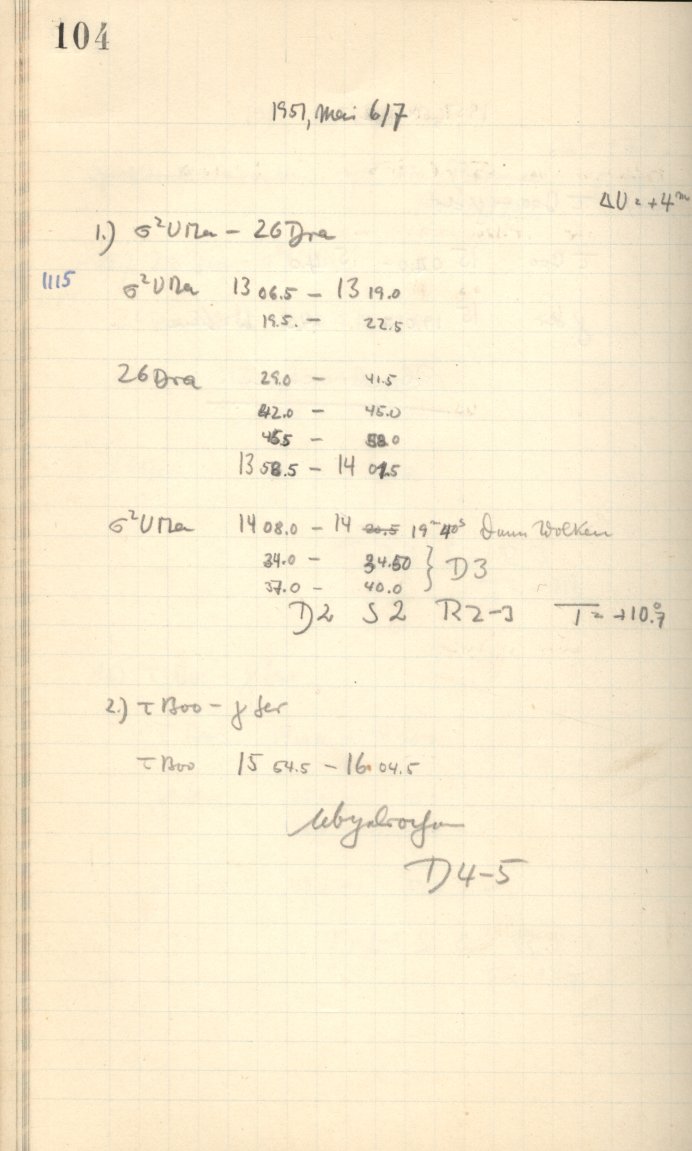 104
1951, Mai 6/7
ΔU = +4ᵐ
1.) σ²UMa – 26Dra
1115 σ²UMa 13 06.5 – 13 19.0
19.5. – 22.5
26Dra 29.0 – 41.5
42.0 – 45.0
45.5 – 58.0
13 58.5 – 14 01.5
σ²UMa 14 08.0 – 14 20.5 19ᵐ 40ˢ Dann Wolken
34.0 – 34.50 } D3
37.0 – 40.0
D2 S2 R2–3 T = +10.°7
2.) τ Boo – γ Ser
τ Boo 15 54.5 – 16 04.5
Abgebrochen
D4–5